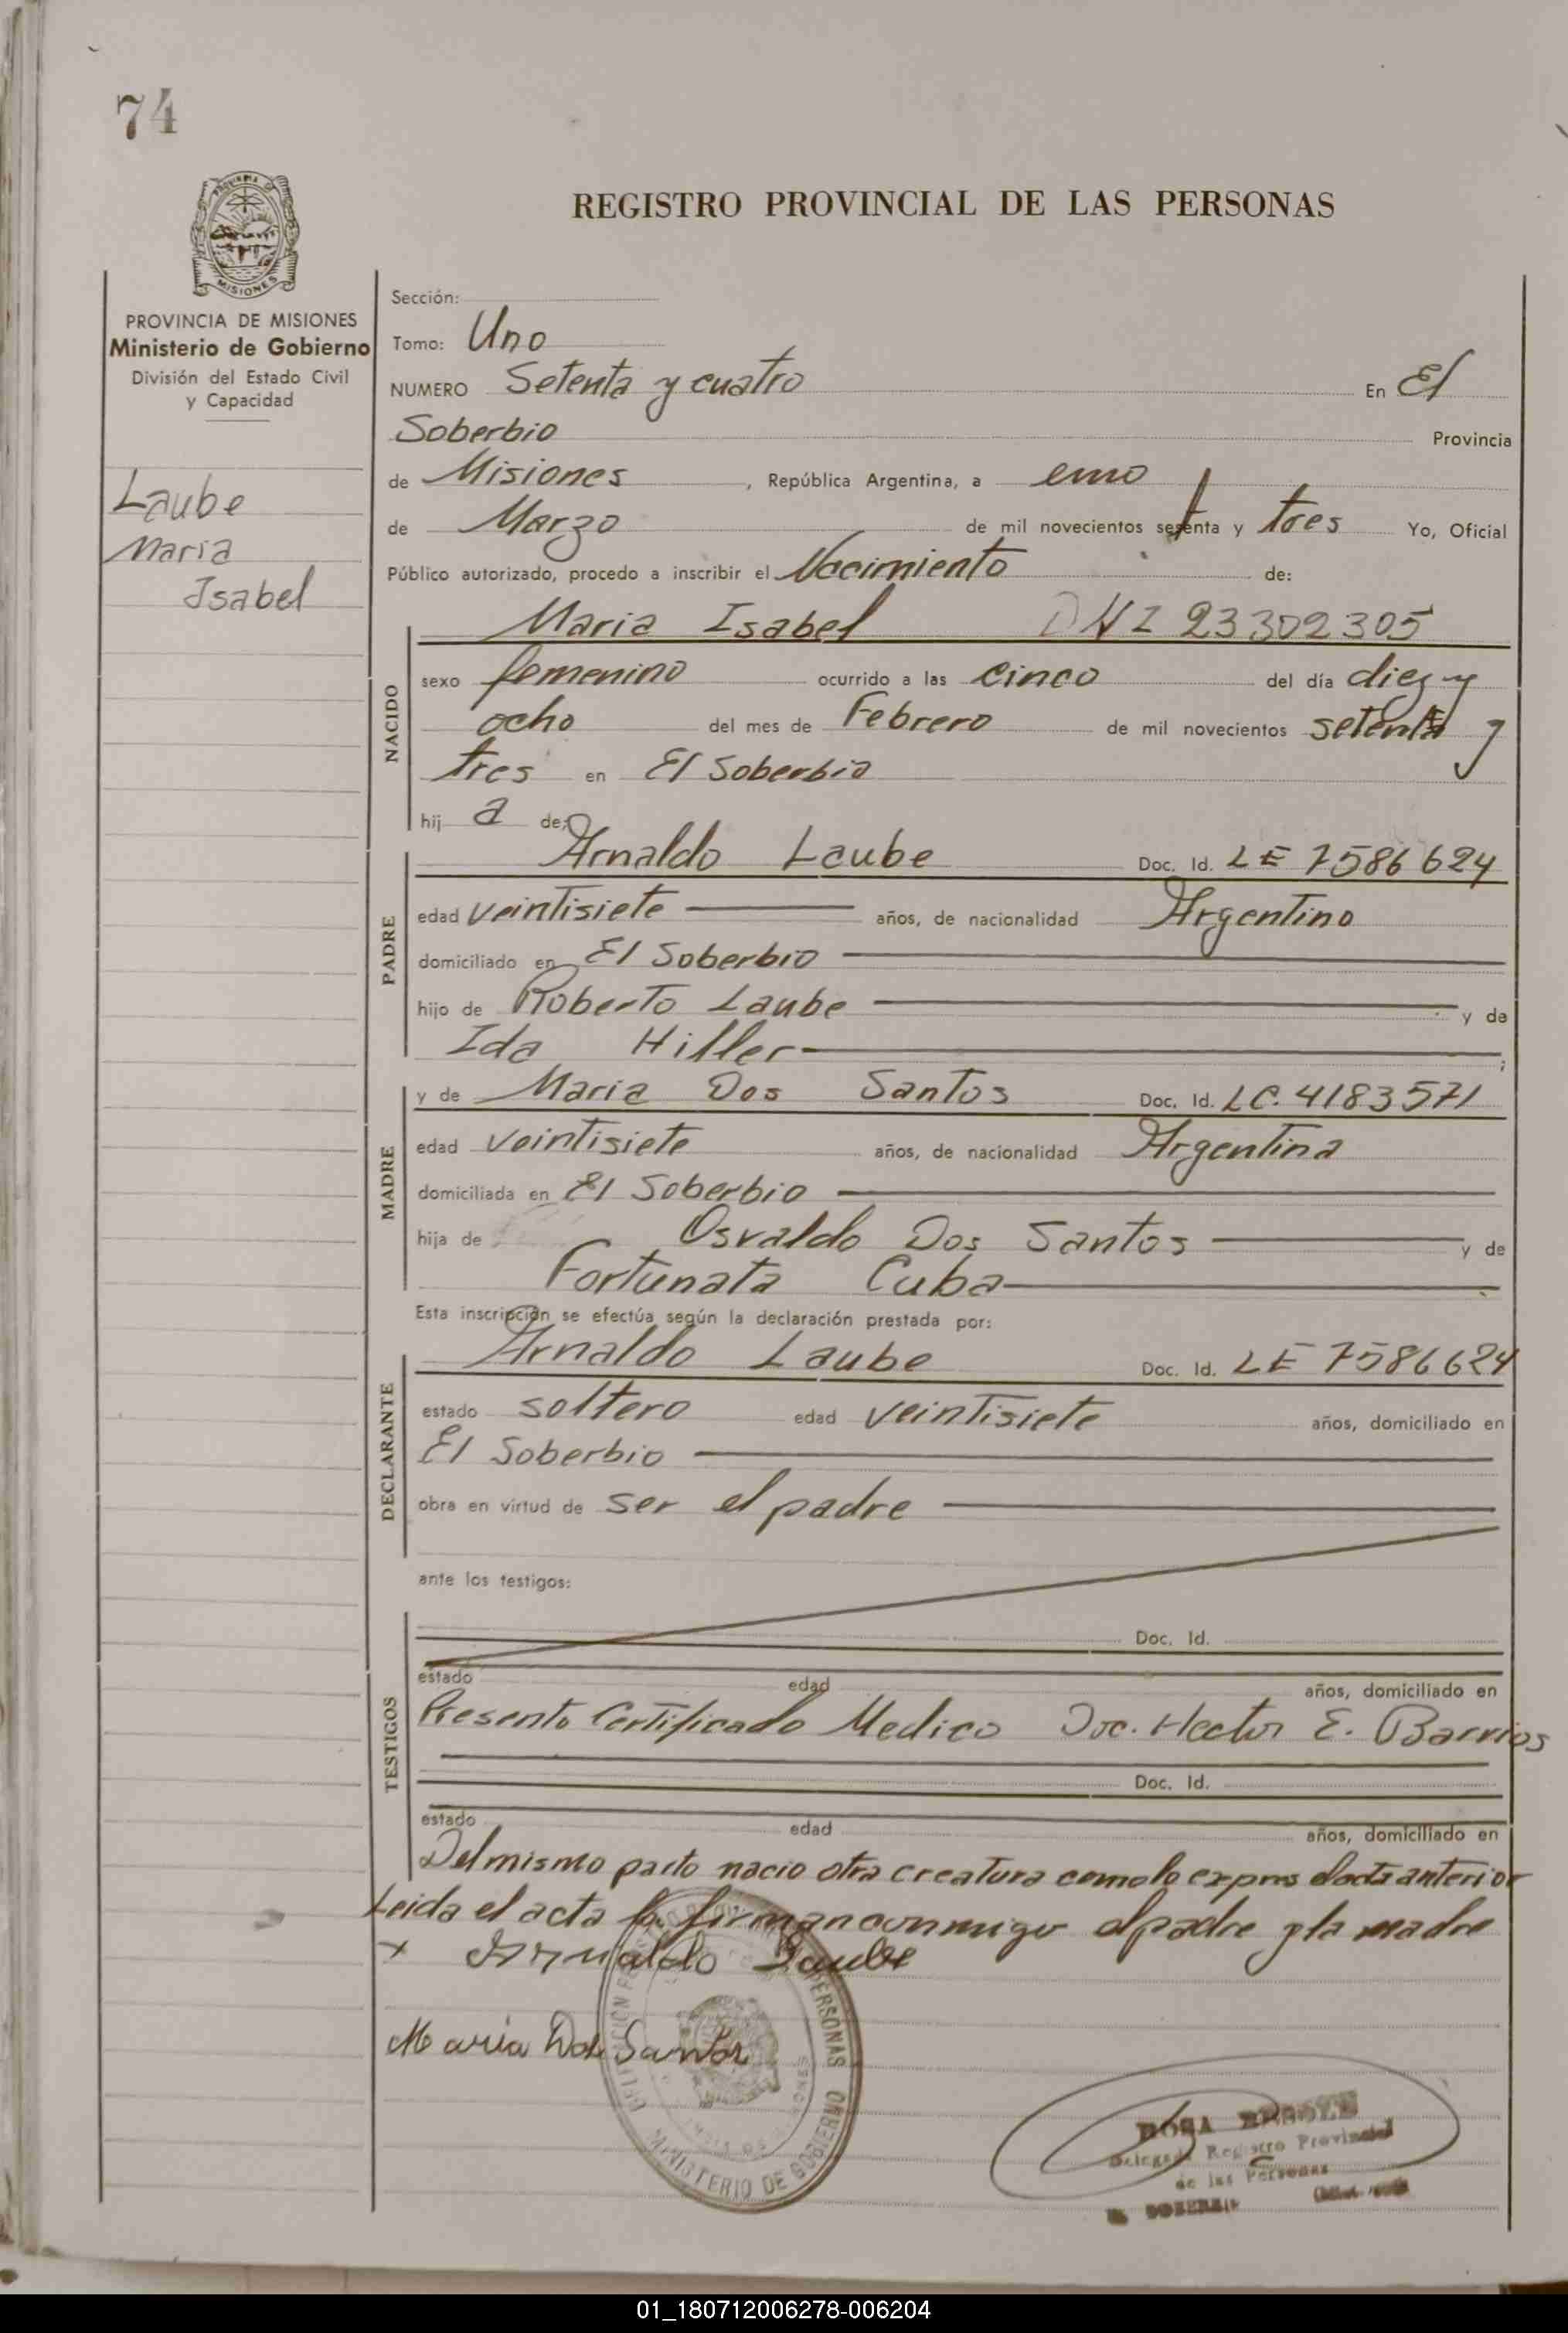 74
PROVINCIA DE
MISIONES
REGISTRO PROVINCIAL DE LAS PERSONAS
PROVINCIA DE MISIONES
Ministerio de Gobierno
División del Estado Civil
y Capacidad
Laube
Maria
Isabel
Sección:
Tomo: Uno
NUMERO Setenta y cuatro En El
Soberbio Provincia
de Misiones, República Argentina, a
de Marzo de mil novecientos setenta y tres Yo, Oficial
Público autorizado, procedo a inscribir el Nacimiento de:
Maria Isabel DNI 23302305
NACIDO
sexo femenino ocurrido a las cinco del día diez y
ocho del mes de Febrero de mil novecientos setenta y
tres en El Soberbio
hij a de:
PADRE
Arnaldo Laube Doc. Id. LE 7586624
edad veintisiete años, de nacionalidad Argentino
domiciliado en El Soberbio
hijo de Roberto Laube y de
Ida Hiller ;
MADRE
y de Maria Dos Santos Doc. Id. LC. 4183571
edad veintisiete años, de nacionalidad Argentina
domiciliada en El Soberbio
hija de Osvaldo Dos Santos y de
Fortunata Cuba
Esta inscripción se efectúa según la declaración prestada por:
DECLARANTE
Arnaldo Laube Doc. Id. LE 7586624
estado soltero edad veintisiete años, domiciliado en
El Soberbio
obra en virtud de ser el padre
ante los testigos:
TESTIGOS
Doc. Id.
estado edad años, domiciliado en
Presento Certificado Medico Doc. Hector E. Barrios
Doc. Id.
estado edad años, domiciliado en
Del mismo parto nacio otra creatura como lo anterior
Leida el acta la firman conmigo el padre y la madre
x Arnaldo Laube
Maria Dos Santos
PERSONAS
MINISTERIO DE GOBIERNO
ROSA
Registro Provincial
de las Personas
01_180712006278-006204